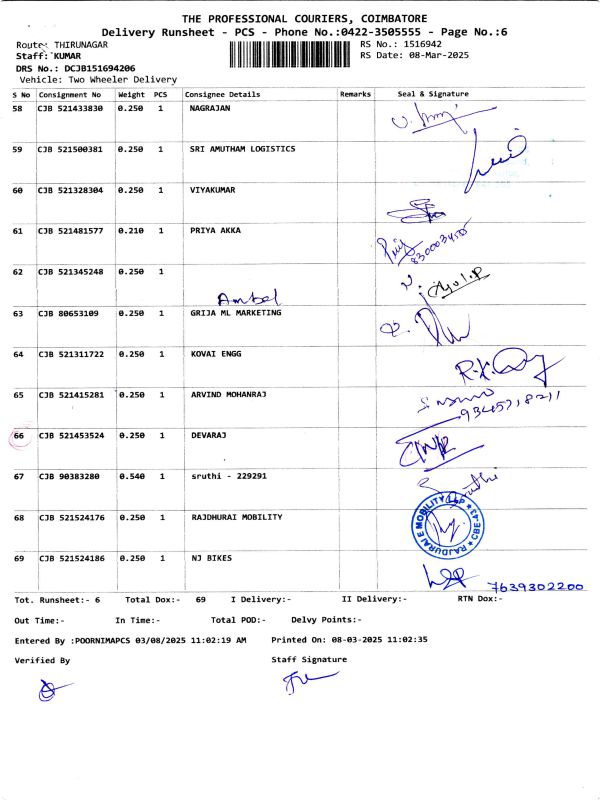 THE PROFESSIONAL COURIERS, COIMBATORE
Delivery Runsheet - PCS - Phone No.:0422-3505555 - Page No.:6
Route: THIRUNAGAR RS No.: 1516942
Staff: KUMAR RS Date: 08-Mar-2025
DRS No.: DCJB151694206
Vehicle: Two Wheeler Delivery
S No Consignment No Weight PCS Consignee Details Remarks Seal & Signature
58 CJB 521433830 0.250 1 NAGRAJAN
59 CJB 521500381 0.250 1 SRI AMUTHAM LOGISTICS
60 CJB 521328304 0.250 1 VIYAKUMAR
61 CJB 521481577 0.210 1 PRIYA AKKA
8300034505
62 CJB 521345248 0.250 1
Ambel
63 CJB 80653109 0.250 1 GRIJA ML MARKETING
64 CJB 521311722 0.250 1 KOVAI ENGG
65 CJB 521415281 0.250 1 ARVIND MOHANRAJ
9345718211
66 CJB 521453524 0.250 1 DEVARAJ
67 CJB 90383280 0.540 1 sruthi - 229291
68 CJB 521524176 0.250 1 RAJDHURAI MOBILITY
RAJDURAI E MOBILITY LLP ★ CBE-43 ★
69 CJB 521524186 0.250 1 NJ BIKES
7639302200
Tot. Runsheet:- 6 Total Dox:- 69 I Delivery:- II Delivery:- RTN Dox:-
Out Time:- In Time:- Total POD:- Delvy Points:-
Entered By :POORNIMAPCS 03/08/2025 11:02:19 AM Printed On: 08-03-2025 11:02:35
Verified By Staff Signature